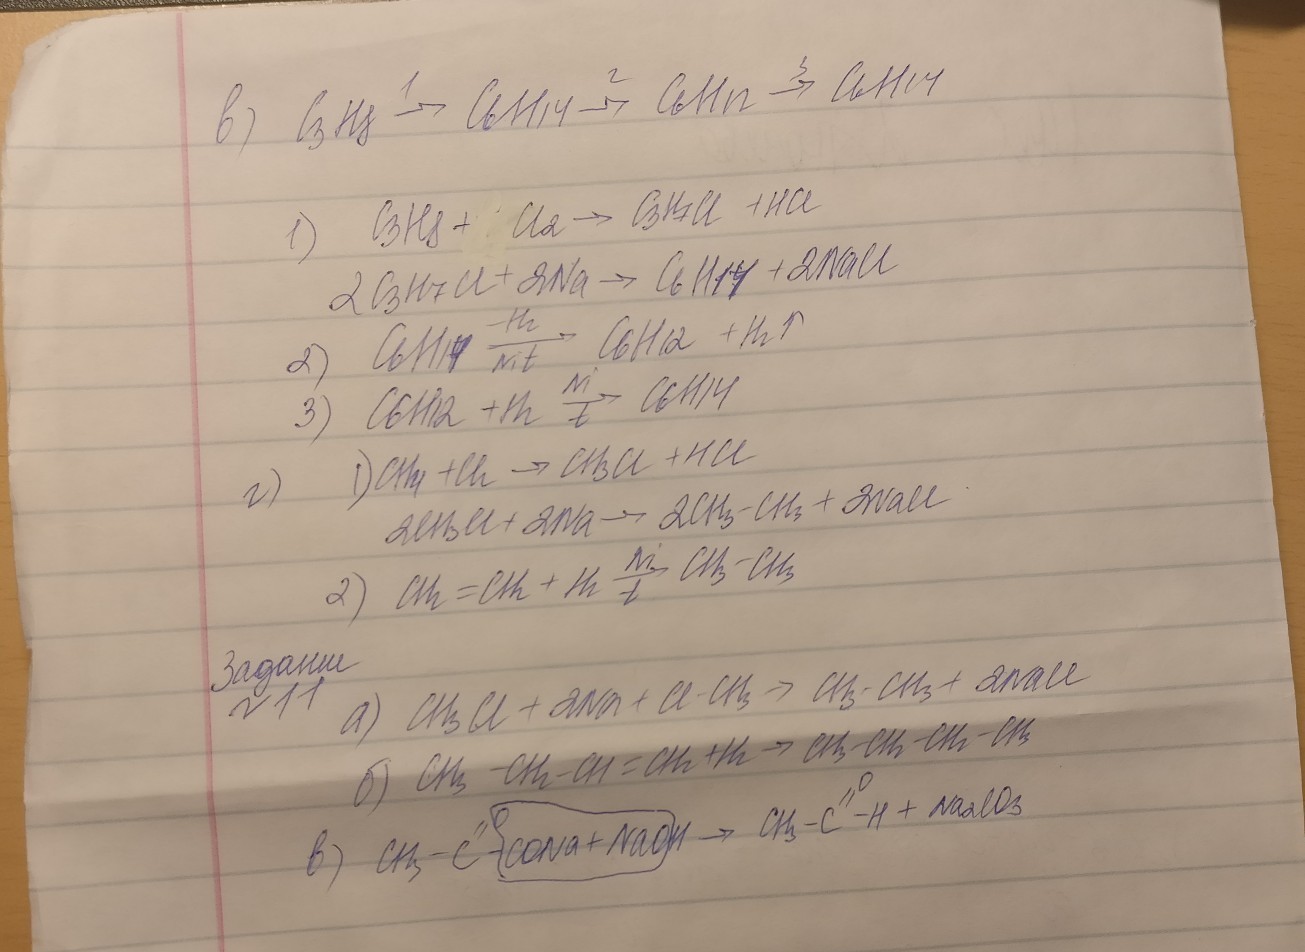 в) C3H8 1→ C6H14 2→ C6H12 3→ C6H14
1) C3H8 + Cl2 → C3H7Cl + HCl
2C3H7Cl + 2Na → C6H14 + 2NaCl
2) C6H14 -H2→ Ni t C6H12 + H2↑
3) C6H12 + H2 Ni→ t C6H14
г) 1) CH4 + Cl2 → CH3Cl + HCl
2CH3Cl + 2Na → 2CH3-CH3 + 2NaCl
2) CH2 = CH2 + H2 Ni→ t CH3-CH3
Задание
№11 а) CH3Cl + 2Na + Cl-CH3 → CH3-CH3 + 2NaCl
б) CH3-CH2-CH=CH2+H2 → CH3-CH2-CH2-CH3
в) CH3-C=O-CONa+NaOH → CH3-C=O-H + Na2CO3